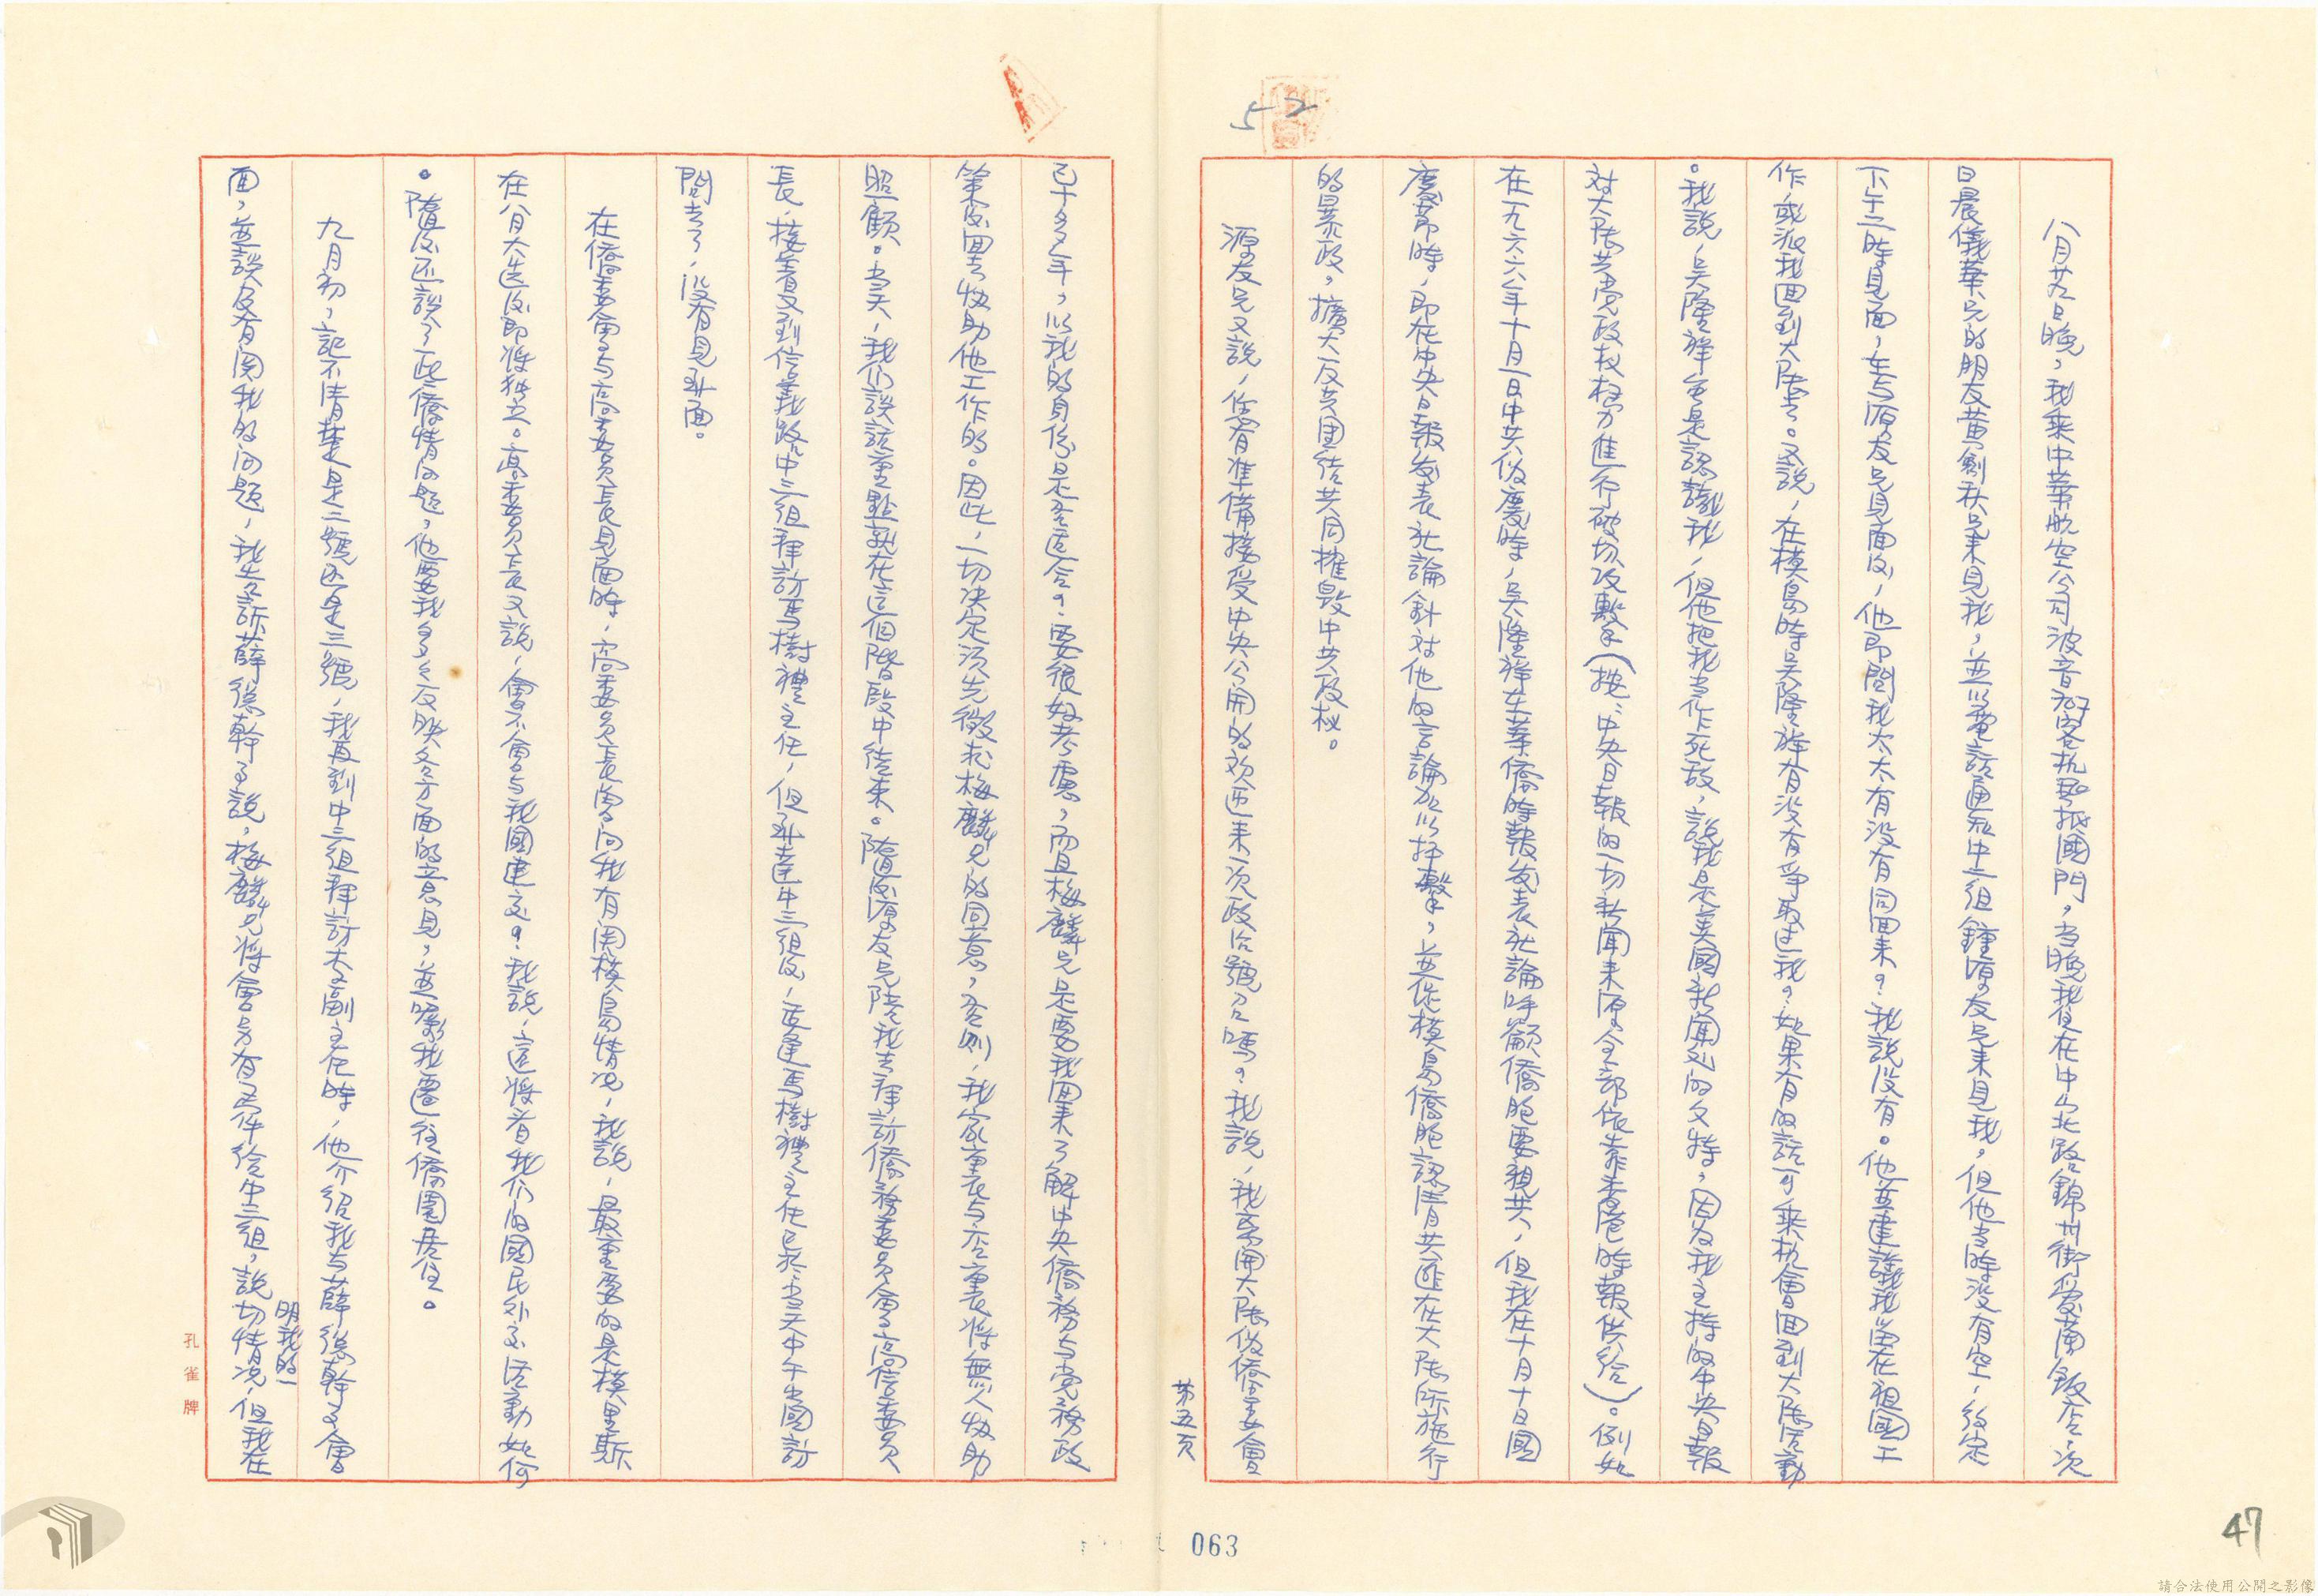 52
八月廿九日晚，我乘中華航空公司波音號客机飛抵國門，当晚我住在中山北路錦州街愛蘭飯店，次
日晨儀華兄的朋友黃劍秋兄來見我，並以電話通知中三組鍾源友兄來見我，但他当時没有空，約定
下午二時見面，在与源友兄見面後，他即問我太太有没有同回来？我說没有。他並建議我留在祖國工
作，或派我回到大陸去。又說，在模島時吳隆祥有没有爭取过我？如果有的話可乘机會回到大陸活動
。我說，吳隆祥雖是認識我，但他把我当作死敌，說我是美國新聞处的文特，因为我主持的中央日報
対大陸共党政权極力進行破坏攻擊（按：中央日報的一切新聞来源全部依靠香港時報供給）。例如
在一九六六年十月一日中共伪慶時，吳隆祥在華僑時報发表社論呼籲僑胞要親共，但我在十月十日國
慶节時，即在中央日報发表社論針対他的言論加以抨擊，並促模島僑胞認清共匪在大陸所施行
的暴政，擴大反共团结共同摧毁中共政权。
源友兄又說，您有准備接受中央公開的欢迎来一次政治號召嗎？我說，我离開大陸伪僑委會
第五页
已十多年，以我的身份是否适合？要很好考慮，而且梅麟兄是要我回来了解中央僑務与党務政
策後回去協助他工作的。因此，一切決定須先徵求梅麟兄的同意，否則，我家重表与店重表将無人協助
照顧。当天，我们談該重點就在這個階段中结束。隨後源友兄陪我去拜訪僑務委員會高信委員
長，接着又到信義路中三組拜訪馬樹禮主任，但到達中三組後，正逢馬樹禮主任已於当天中午出國訪
問去了，没有見到面。
在僑委會与高委員長見面時，高委員長曾问我有関模島情况，我說，最重要的是模里斯
在八月大选後即将独立。高委員長又說，會不會与我國建交？我說，這将看我们的國民外交活動如何
。隨後还談了一些僑情问题，他要我多多反映各方面的意見，並囑我遷往僑園居住。
九月初，記不清楚是二號还是三號，我再到中三組拜訪李副主任時，他介绍我与薛總幹事會
面，並談及有関我的问题，我告訴薛總幹事說，梅麟兄将會另有函件给中三組，說明我的一切情况，但我在
孔雀牌
063
47
請合法使用公開之影像